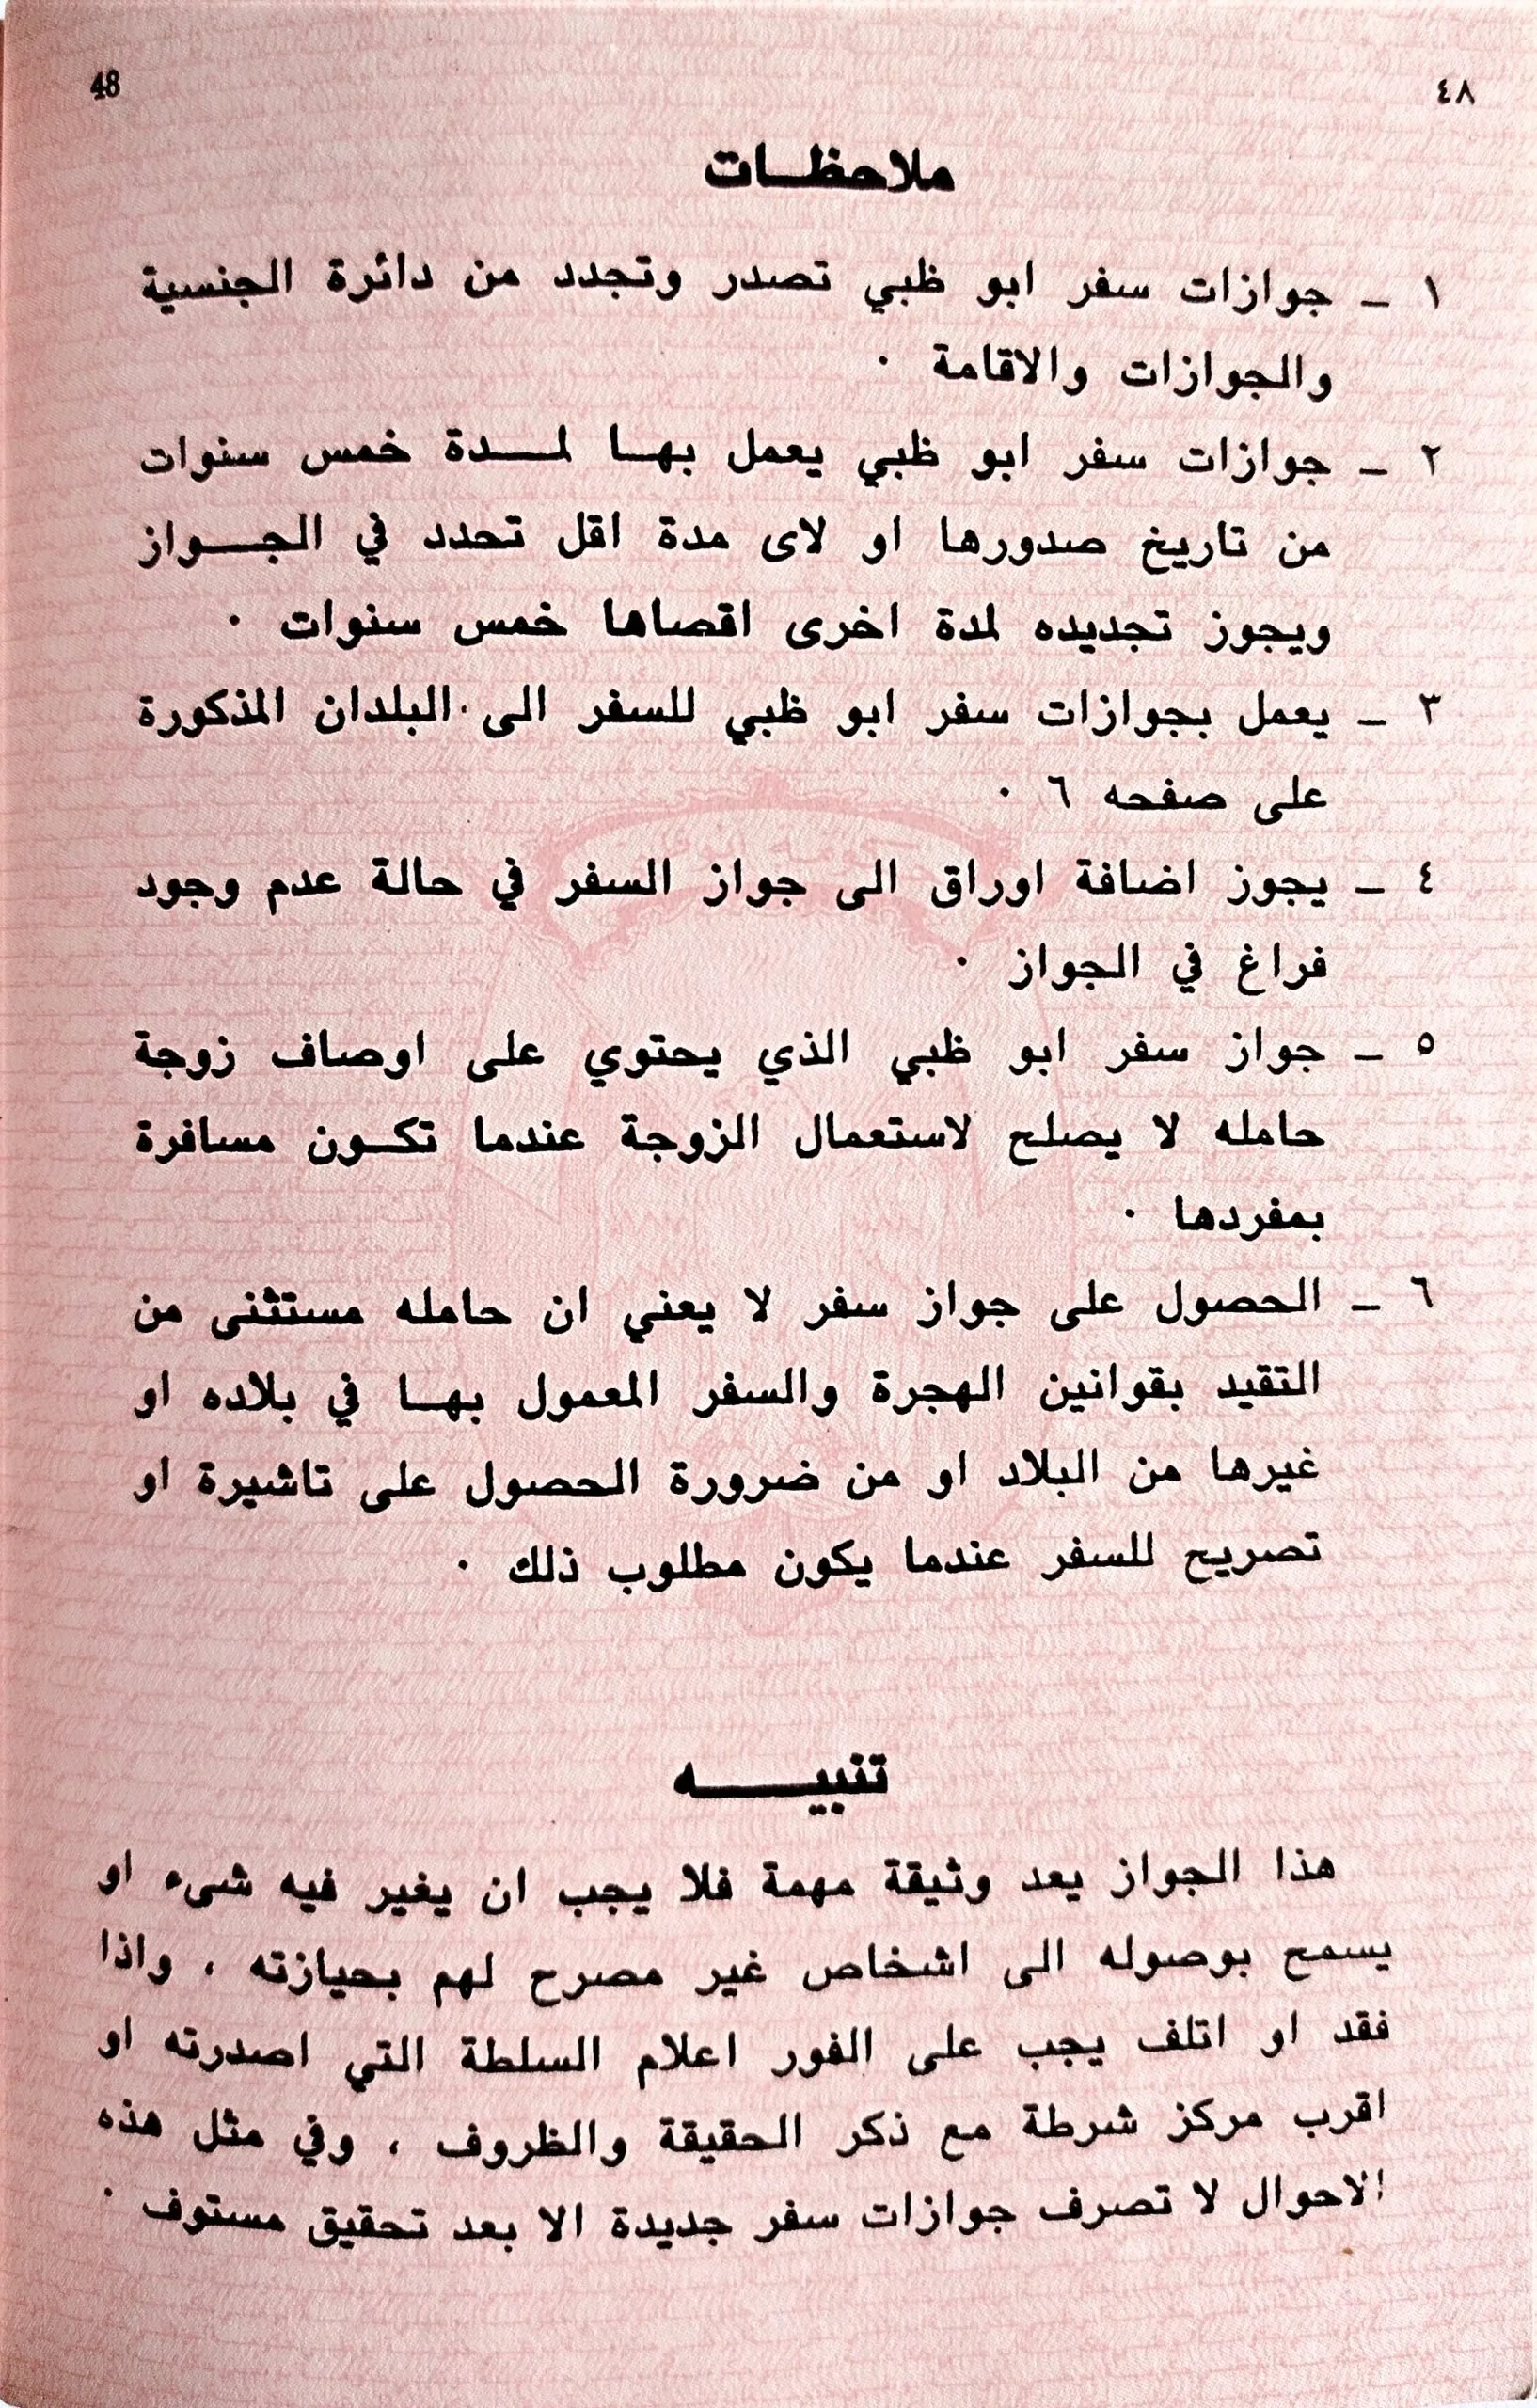 48
٤٨
ملاحظات
١ - جوازات سفر ابو ظبي تصدر وتجدد من دائرة الجنسية
والجوازات والاقامة .
٢ - جوازات سفر ابو ظبي يعمل بها لمدة خمس سنوات
من تاريخ صدورها او لاى مدة اقل تحدد في الجواز
ويجوز تجديده لمدة اخرى اقصاها خمس سنوات .
٣ - يعمل بجوازات سفر ابو ظبي للسفر الى البلدان المذكورة
على صفحه ٦ .
٤ - يجوز اضافة اوراق الى جواز السفر في حالة عدم وجود
فراغ في الجواز .
٥ - جواز سفر ابو ظبي الذي يحتوي على اوصاف زوجة
حامله لا يصلح لاستعمال الزوجة عندما تكون مسافرة
بمفردها .
٦ - الحصول على جواز سفر لا يعني ان حامله مستثنى من
التقيد بقوانين الهجرة والسفر المعمول بها في بلاده او
غيرها من البلاد او من ضرورة الحصول على تاشيرة او
تصريح للسفر عندما يكون مطلوب ذلك .
تنبيه
هذا الجواز يعد وثيقة مهمة فلا يجب ان يغير فيه شىء او
يسمح بوصوله الى اشخاص غير مصرح لهم بحيازته ، واذا
فقد او اتلف يجب على الفور اعلام السلطة التي اصدرته او
اقرب مركز شرطة مع ذكر الحقيقة والظروف ، وفي مثل هذه
الاحوال لا تصرف جوازات سفر جديدة الا بعد تحقيق مستوف .